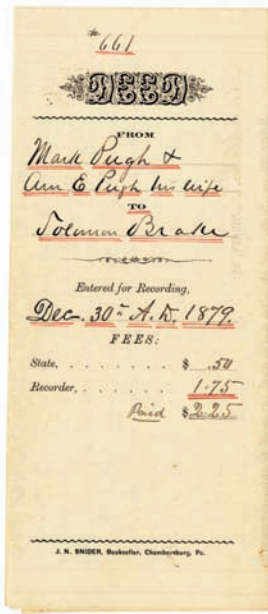 #661
DEED
FROM
Mark Pugh &
Ann E Pugh his wife
TO
Solomon Brake
Entered for Recording,
Dec. 30th A.D. 1879.
FEES:
State, . . . . . . . $ .50
Recorder, . . . . . . 1.75
Paid $2.25
J. N. SNIDER, Bookseller, Chambersburg, Pa.